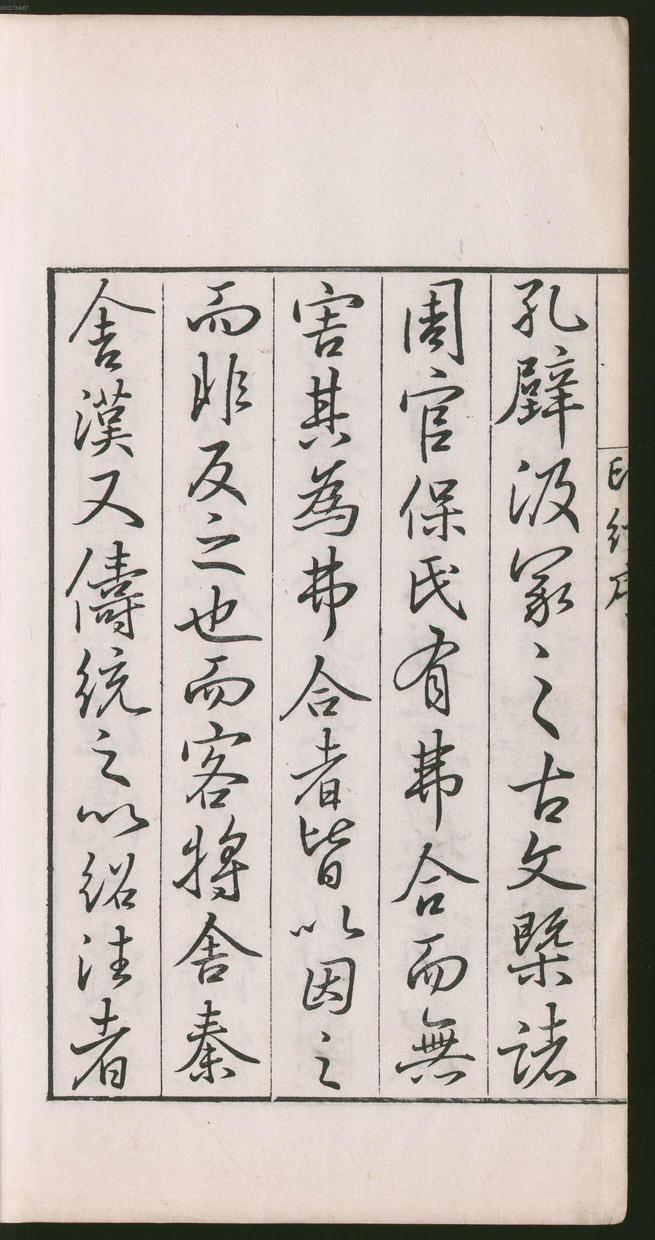 孔壁汲冢之古文槩諸
周官保氏有弗合而無
害其為弗合者皆以因之
而非反之也而客將舍秦
舍漢又儔統之以紹往者
00073487